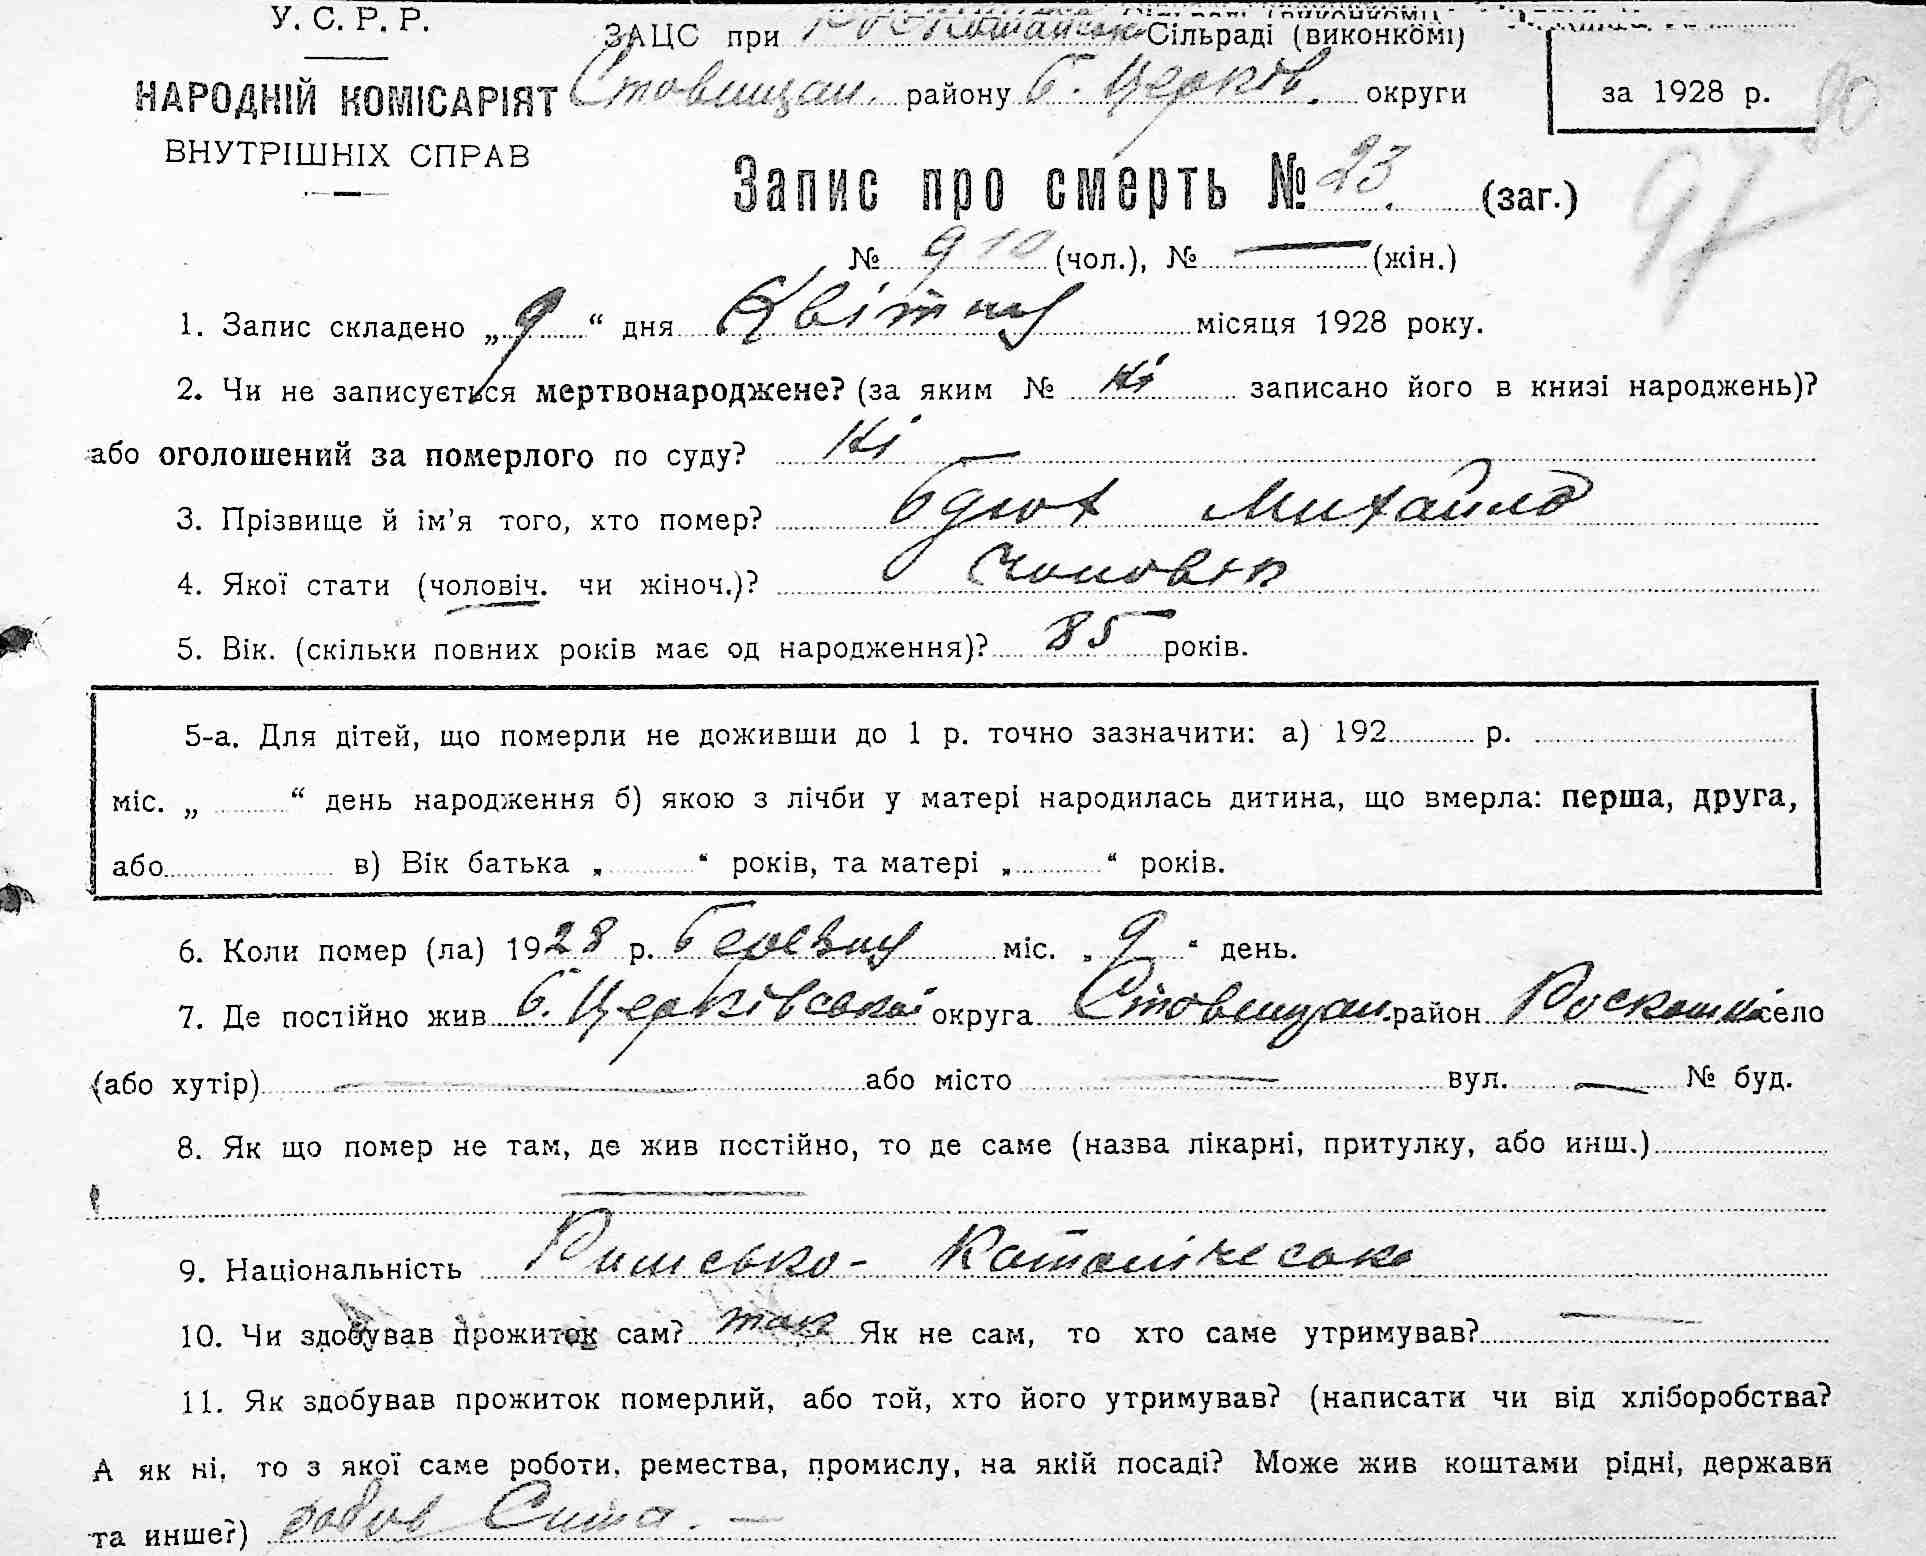 У. С. Р. Р.
НАРОДНІЙ КОМІСАРІЯТ
ВНУТРІШНІХ СПРАВ
ЗАЦС при Сільраді (виконкомі)
Ставищан. району Б. Церків. округи
за 1928 р.
90
97
Запис про смерть № 23. (заг.)
№ 9 10 (чол.), № — (жін.)
1. Запис складено „9“ дня Квітня місяця 1928 року.
2. Чи не записується мертвонароджене? (за яким № Ні записано його в книзі народжень)?
або оголошений за померлого по суду? Ні
3. Прізвище й ім’я того, хто помер? Бдюх Михайло
4. Якої стати (чоловіч. чи жіноч.)? Чоловік
5. Вік. (скільки повних років має од народження)? 85 років.
5-а. Для дітей, що померли не доживши до 1 р. точно зазначити: а) 192 р.
міс. „ “ день народження б) якою з лічби у матері народилась дитина, що вмерла: перша, друга,
або в) Вік батька „ “ років, та матері „ “ років.
6. Коли помер (ла) 1928 р. Березня міс. „9“ день.
7. Де постійно жив Б. Церківської округа Ставищан. район Роскошна село
(або хутір) — або місто — вул. — № буд.
8. Як що помер не там, де жив постійно, то де саме (назва лікарні, притулку, або инш.)
—
9. Національність Римсько-Католическа
10. Чи здобував прожиток сам? так Як не сам, то хто саме утримував? —
11. Як здобував прожиток померлий, або той, хто його утримував? (написати чи від хліборобства?
А як ні, то з якої саме роботи, ремества, промислу, на якій посаді? Може жив коштами рідні, держави
та инше?)